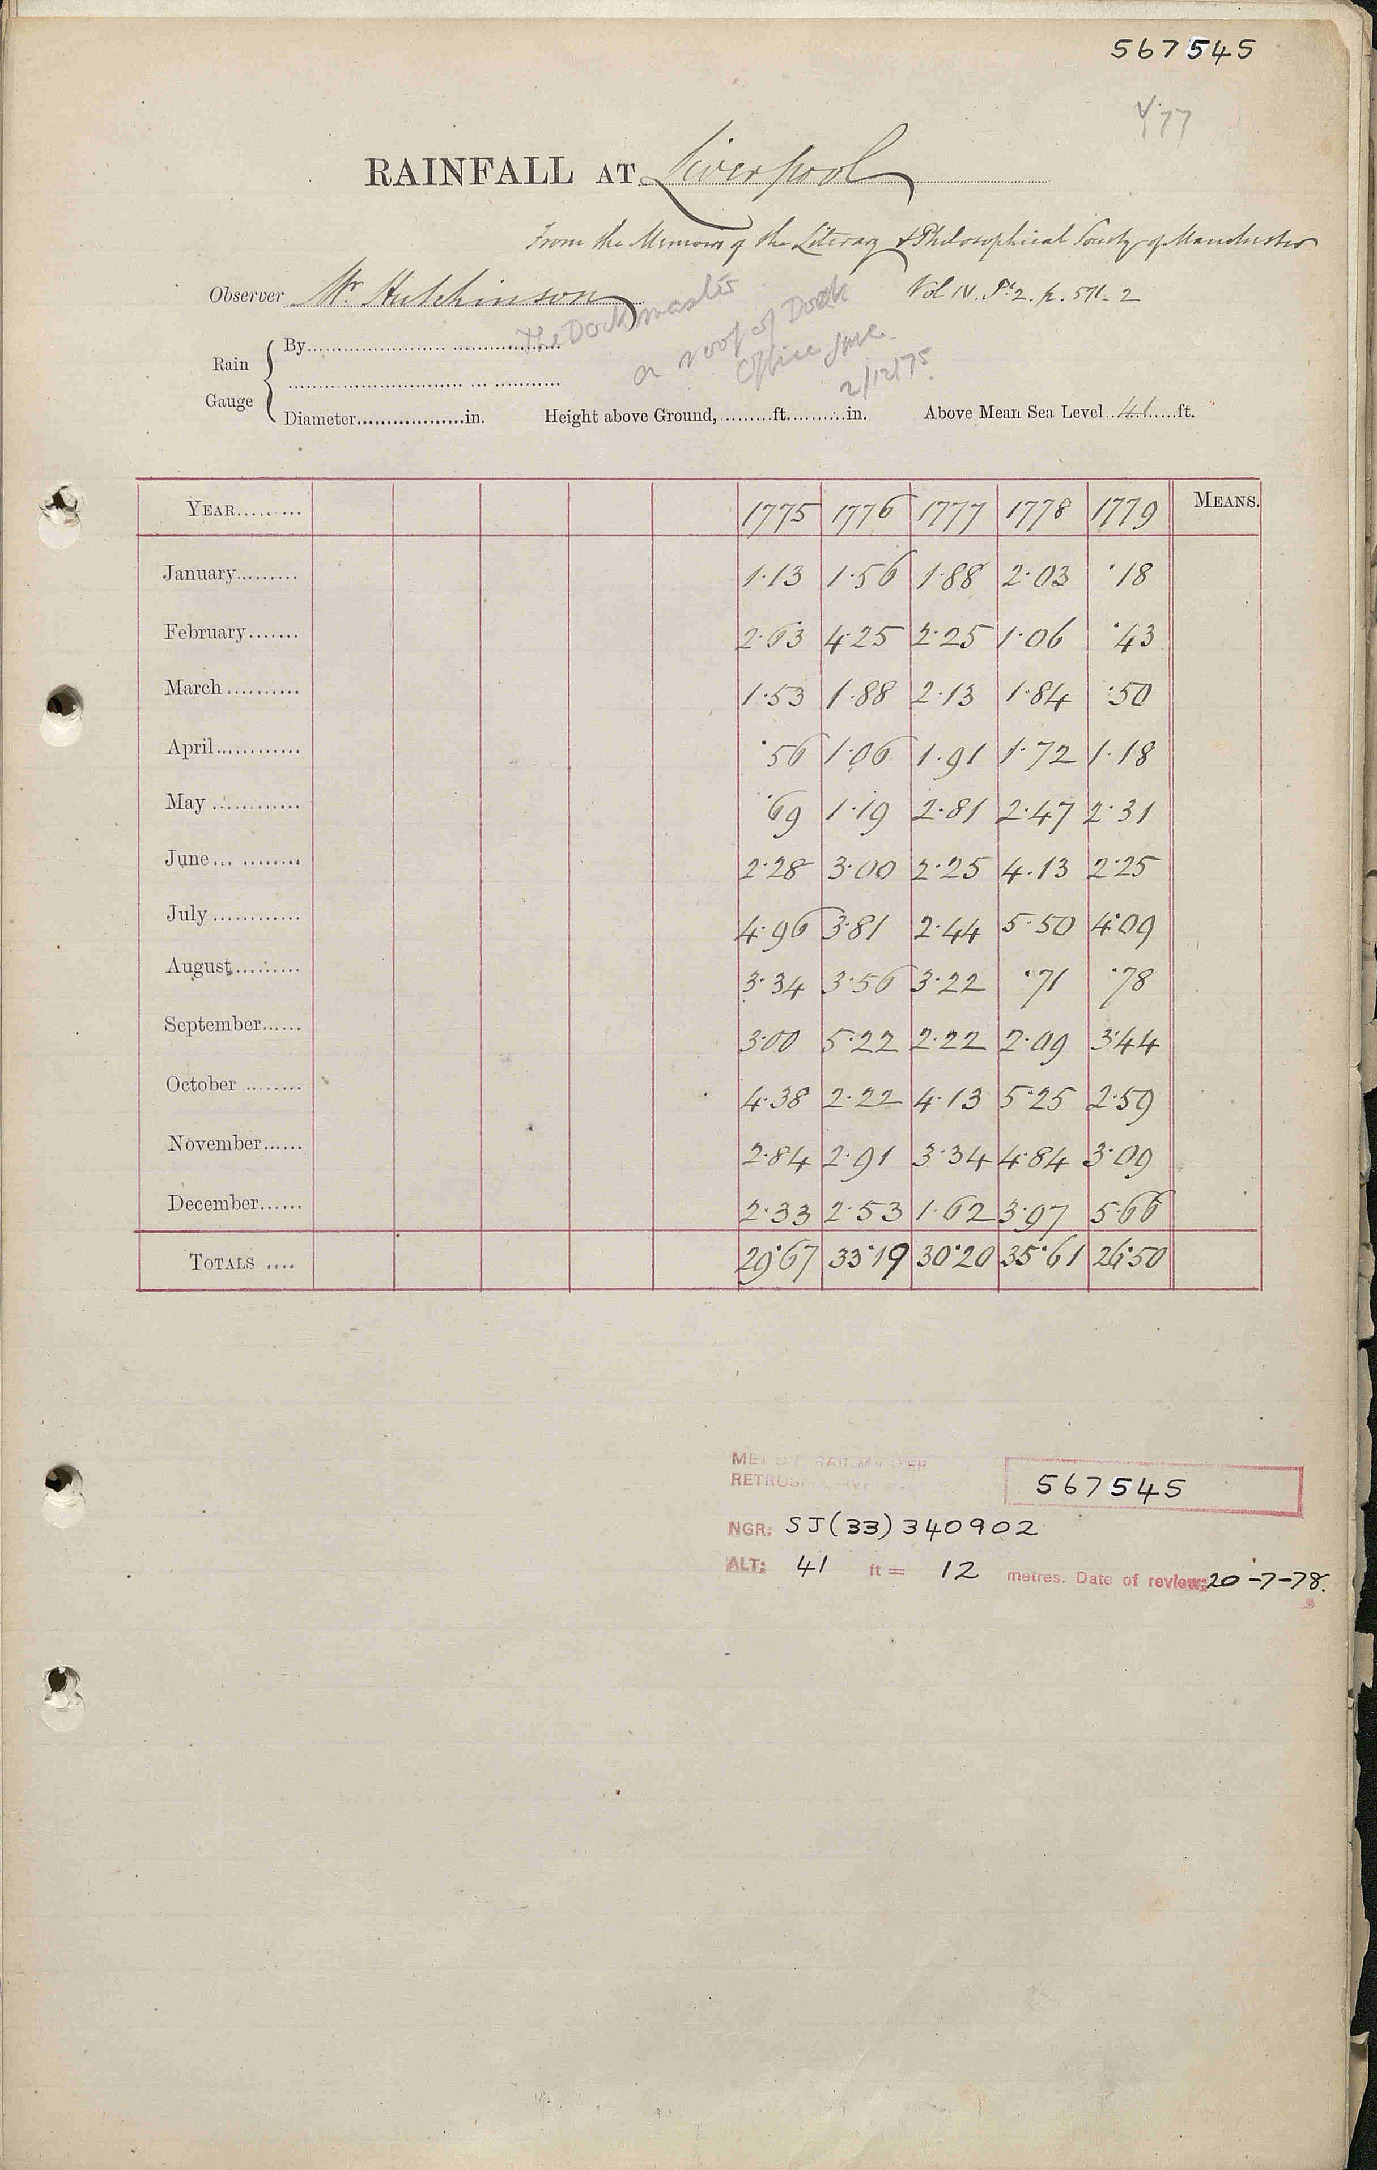 567545
RAINFALL AT Liverpool
From the Memoirs of the Literary & Philosophical Society of Manchester
Observer Mr Hutchinson Vol IV. Pt 2. p. 571-2
The Dock master
on roof of Dock
Office
2/12/75
Rain Gauge
By
Diameter in. Height above Ground, ft. in. Above Mean Sea Level 41 ft.
YEAR 1775 1776 1777 1778 1779 MEANS.
January 1.13 1.56 1.88 2.03 .18
February 2.63 4.25 2.25 1.06 .43
March 1.53 1.88 2.13 1.84 .50
April .56 1.06 1.91 1.72 1.18
May .69 1.19 2.81 2.47 2.31
June 2.28 3.00 2.25 4.13 2.25
July 4.96 3.81 2.44 5.50 4.09
August 3.34 3.56 3.22 .71 .78
September 3.00 5.22 2.22 2.09 3.44
October 4.38 2.22 4.13 5.25 2.59
November 2.84 2.91 3.34 4.84 3.09
December 2.33 2.53 1.62 3.97 5.66
TOTALS 29.67 33.19 30.20 35.61 26.50
567545
NGR: SJ(33)340902
ALT: 41 ft = 12 metres. Date of review: 20-7-78.